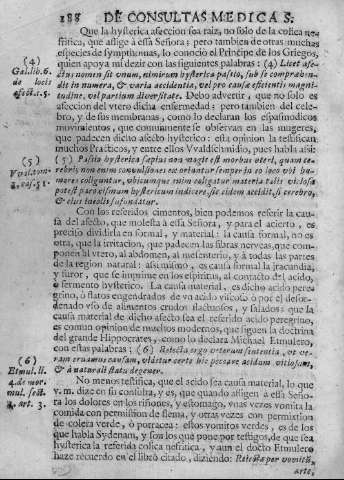 188 DE CONSULTAS MEDICAS.
Que la hysterica afeccion sea raiz, no solo de la colica ne-
fritica, que aflige à essa Señora; pero tambien de otras muchas
especies de symptomas, lo conociò el Principe de los Griegos,
(4)
Gal. lib. 6.
de locis
afect. c. 5.
quien apoya mi dezir con las siguientes palabras: (4) Licet afe-
ctus nomen sit unum, nimirum hysterica passio, sub se comprahen-
dit in numera, & varia accidentia, vel pro causæ eficientis magni-
tudine, vel partium diversitate. Debo advertir, que no solo es
afeccion del vtero dicha enfermedad; pero tambien del cele-
bro, y de sus membranas, como lo declaran los espasmodicos
movimientos, que comunmente se observan en las mugeres,
que padecen dicho afecto hysterico: esta opinion la testifican
muchos Practicos, y entre ellos VValdschmidio, pues habla assi:
(5)
(5) Passio hysterica sæpius non magis est morbus uteri, quam cere-
bris non enim convulsiones ex oriuntur semper in eo loco vbi hu-
mores colliguntur, ubicumque enim colligatur materia talis viciosa
potest paroxismum hystericum indicere, sic eidem accidit, si cerebro,
& eius tunicis sufundatur.
Con los referidos cimientos, bien podemos referir la cau-
sa del afecto, que molesta à essa Señora, y para el acierto, es
preciso dividirla en formal, y material: la causa formal, no es
otra, que la irritacion, que padecen las fibras nerveas, que com-
ponen al vtero, al abdomen, al mesenterio, y à todas las partes
de la region natural: assimismo, es causa formal la jracundia,
y furor, que se imprime en los espiritus, al contacto del acido,
ò fermento hysterico. La causa material, es dicho acido pere-
grino, ò flatos engendrados de vn acido viscoso ò por el desor-
denado vso de alimentos crudos flatuosos, y salados: que la
causa material de dicho afecto sea el referido acido peregrino,
es comun opinion de muchos modernos, que siguen la doctrina
del grande Hippocrates, como lo declara Michael Etmulero,
(6)
Etmul. li.
4. de mor.
mul. sect.
art. 3.
con estas palabras: (6) Relecta ergo veterum sententia, ut ve-
ram eruamus causam, videtur certe hic peccare acidum vitiosum,
& à naturali statu degener.
No menos testifica, que el acido sea causa material, lo que
v. m. dize en su consulta, y es, que quando afligen à essa Seño-
ra los dolores en los riñones, y estomago, vnas vezes vomita la
comida con permistion de flema, y otras vezes con permixtion
de colera verde, ò porracea: estos vomitos verdes, es de los
que habla Sydenam, y son los que pone por testigos, de que sea
hysterica la referida colica nefritica, y aun el docto Etmulero
haze recuerdo en el libro citado, diziendo:
arte,